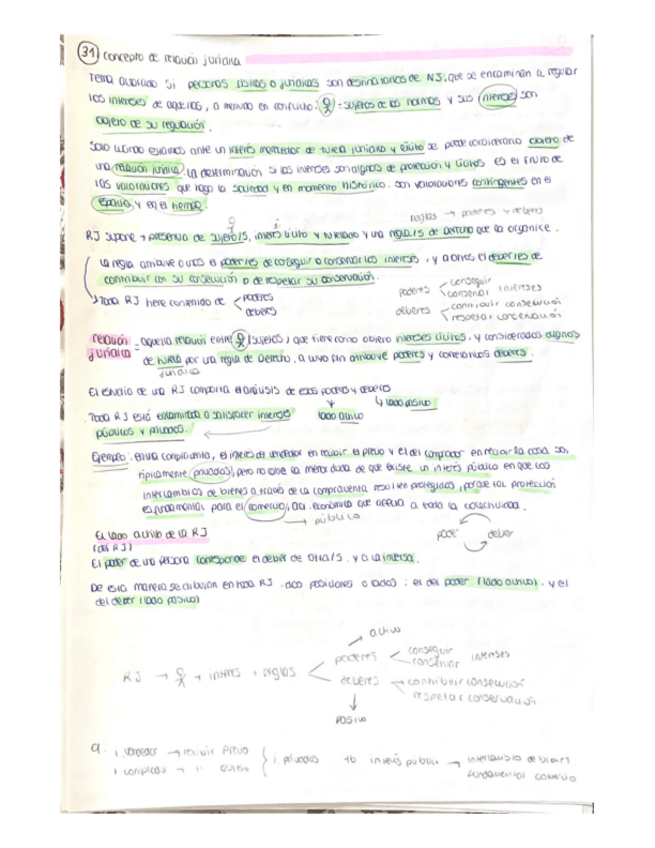 31 Concepto de relación jurídica
Tema abordado si personas físicas o jurídicas son destinatarias de NJ, que se encaminan a regular
los intereses de aquellos, a menudo en conflicto: = sujetos de las normas y sus intereses son
objeto de su regulación.
Solo cuando estamos ante un interés merecedor de tutela jurídica y lícito se puede considerarlo objeto de
una relación jurídica. La determinación si los intereses son dignos de protección y lícitos es el fruto de
las valoraciones que haga la sociedad y en momento histórico. Son valoraciones contingentes en el
espacio y en el tiempo.
reglas → poderes y deberes
RJ supone → presencia de sujeto/s, interés lícito y tutelado y una regla/s de Derecho que la organice.
La regla atribuye a unos el poder/es de conseguir o conservar los intereses, y a otros el deber/es de
contribuir con su consecución o de respetar su conservación.
→ Toda RJ tiene contenido de < poderes
deberes
poderes < conseguir
conservar intereses
deberes < contribuir consecución
respetar conservación
relación jurídica = aquella relación entre (sujetos) que tiene como objeto intereses lícitos, y considerados dignos
de tutela por una regla de Derecho, a cuyo fin atribuye poderes y correlativos deberes.
jurídica
El estudio de una RJ comporta el análisis de esos poderes y deberes
lado activo
lado pasivo
Toda RJ está encaminada a satisfacer intereses
públicos y privados.
Ejemplo: en una compraventa, el interés del vendedor en recibir el precio y el del comprador en recibir la cosa son
típicamente privados, pero no cabe la menor duda de que existe un interés público en que los
intercambios de bienes a través de la compraventa resulten protegidos, porque tal protección
es fundamental para el comercio, act. económica que afecta a toda la colectividad.
→ público
El lado activo de la RJ
(del RJ)
poder deber
El poder de una persona corresponde el deber de otra/s, y a la inversa.
De esta manera se dibujan en toda RJ dos posiciones o lados: el del poder (lado activo), y el
del deber (lado pasivo)
activo
RJ → + interés + reglas < poderes < conseguir
conservar intereses
deberes → contribuir consecución
respetar conservación
pasivo
i. vendedor → recibir precio
i. comprador → " cosa
i. privados tb interés público → intercambio de bienes
fundamental comercio